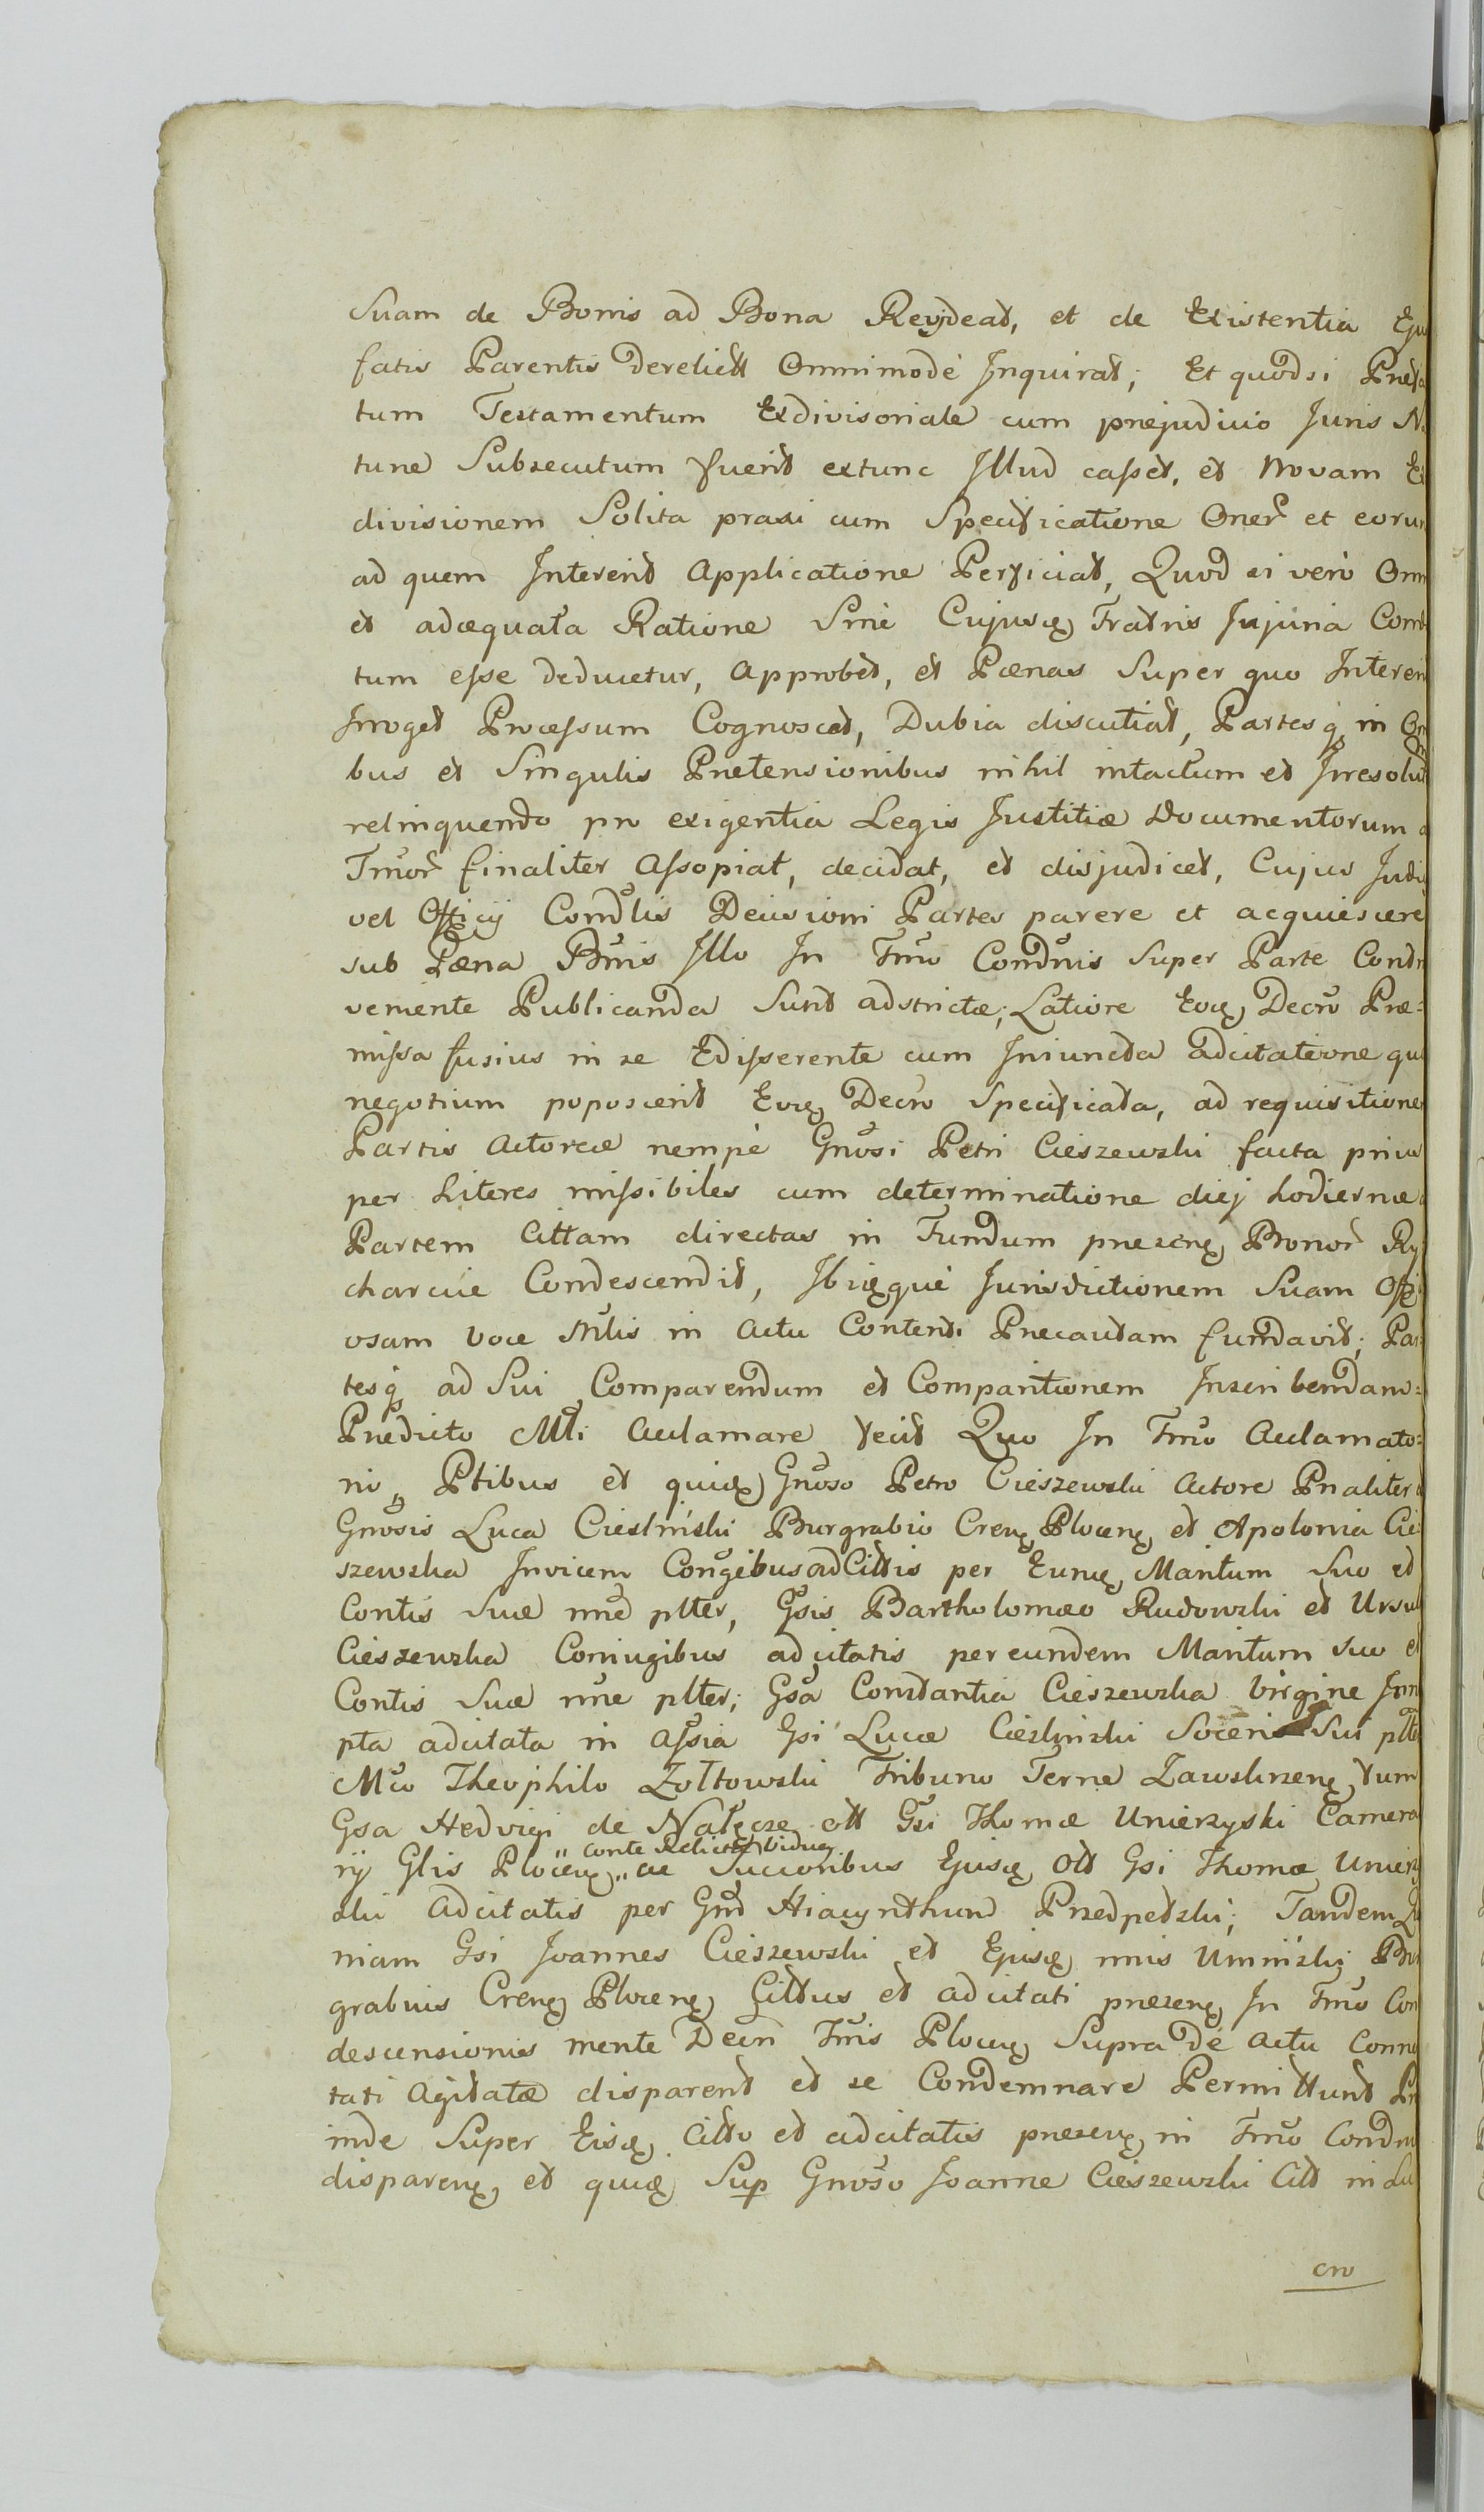 Suam de Bonis ad Bona Reijdeat, et de Existentia Eju
fatis Parentis derelictt Omnimodè Inquirat; Et quodsi Præfa
tum Testamentum Exdivisoriale cum præjudicio Juris Na
turæ Subsecutum fuerit extunc Illud casset, et Novam Ex
divisionem Solita praxi cum Specificatione Oner et eorun
ad quem Intererit Applicatione Perficiat, Quod si verò Omn
et adæquata Ratione Sine Cujusq Fratris Injuria Comp
tum esse deducetur, Approbet, et Pœnas Super quo Intereri
Irroget Processum Cognoscet, Dubia discutiat, Partesq in Om
bus et Singulis Prætensionibus nihil intactum et Irresolut
relinquendo pro exigentia Legis Justitiæ Documentorum a
Tmor finaliter Assopiat, decidat, et disjudicet, Cujus Judi
vel Officij Condlis Decisioni Partes parere et acquiescere
sub Pæna Bnis Illo In Tmo Condnis Super Parte Condn
veniente Publicanda Sunt adstrictæ; Latiore Eoq Decro Præ=
missa fusius in se Edisserente cum Iniuncta adcitatione qu
negotium poposcerit Eoq Decro Specificata, ad requisitione
Partis Actoreæ nempè Gnosi Petri Cieszewski facta prius
per Literes missibiles cum determinatione diej hodiernæ
Partem Cittam directas in Fundum præsenq Bonor Ry
charcice Condescendit, Ibiqque Jurisdictionem Suam Offi
osam voce Mtlis in Actu Contenti Præcautam fundavit; Par
tesq ad Sui Comparendum et Comparitionem Inscribendam=
Prædicto Mtli Acclamare fecit Quo In Tmo Acclamato=
rio Ptibus et quidq Gnoso Petro Cieszewski Actore Pnaliter
Gnosis Luca Ciesliński Burgrabio Crenq Plocenq et Apolonia Cie
szewska Invicem Congibus adCittis per Eunq Maritum Suo et
Contis Suæ nne plter, Gsis Bartholomæo Rudowski et Ursul
Cieszewska Coniugibus adcitatis per eundem Maritum suo et
Contis Suæ nne plter; Gsa Constantia Cieszewska Virgine Inn
pta adcitata in Assia Gsi Lucæ Ciesliński Soceri Sui plte
Mco Theophilo Zołtowski Tribuno Terræ Zawskrzenq tum
Gsa Hedvigi de Nałęcze ott Gsi Thomæ Unierzyski Camera
conte Relicta Vidua
rij Glis Plocenq " ac Succoribus Ejusq Ott Gsi Thomæ Unierz
ski Adcitatis per Gnd Hiacynthum Przedpełski; Tandem Qu
niam Gsi Joannes Cieszewski et Ejusq nnis Umiński Bur
grabius Crenq Plocenq Cittus et adcitati præsenq In Tmo Con
descensionis mente Decri Tmis Plocenq Supra De Actu Conno
tati Agitatæ disparent et se Condemnare Permittunt Pro
inde Super Eisq Citto et adcitatis præsenq in Tmo Condni
disparenq et quidq Sup Gnoso Joanne Cieszewski Citt in Lu
cro